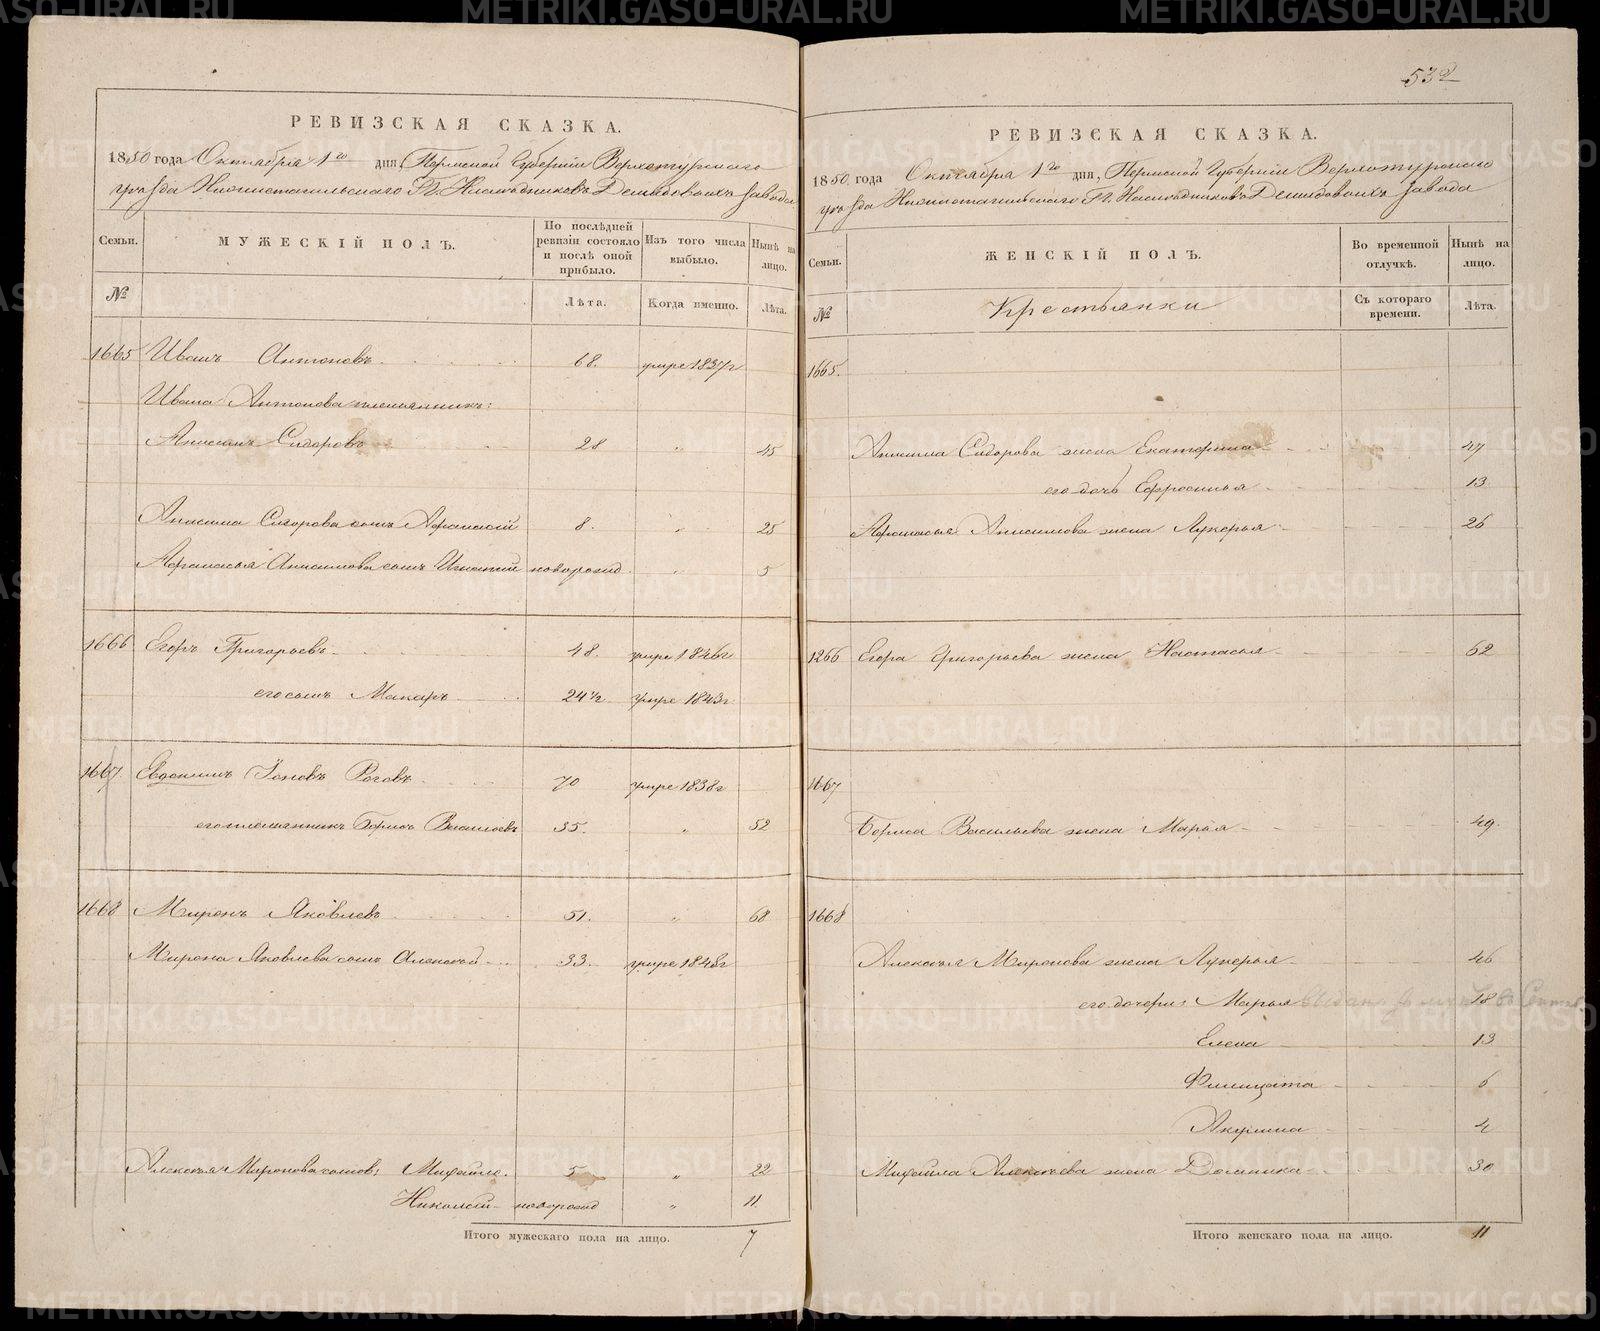 532
РЕВИЗСКАЯ СКАЗКА.
1850 года Октября 1го дня, Пермской Губернiи Верхотурскаго
уѣзда Нижнетагильскаго Гг. Наслѣдниковъ Демидовыхъ завода
Семьи. МУЖЕСКІЙ ПОЛЪ. По послѣдней ревизіи состояло и послѣ оной прибыло. Изъ того числа выбыло. Нынѣ на лицо.
№ Лѣта. Когда именно. Лѣта.
1665 Иванъ Антоновъ 68. умре 1837г
Ивана Антонова племянникъ:
Анисимъ Сидоровъ 28 " 45
Анисима Сидорова сынъ Афанасій 8. " 25
Афанасья Анисимова сынъ Игнатий новорожд " 5
1666 Егоръ Григорьевъ 48. умре 1846г
его сынъ Макаръ 24 1/2 умре 1843г
1667 Евдокимъ Іоновъ Роговъ 70 умре 1838г
его племянникъ Борисъ Васильевъ 35. " 52
1668 Миронъ Яковлевъ 51. " 68
Мирона Яковлева сынъ Алексѣй 33. умре 1848г
Алексѣя Миронова сыновья: Михайло. 5 " 22
Николай новорожд " 11
Итого мужескаго пола на лицо. 7
РЕВИЗСКАЯ СКАЗКА.
1850 года Октября 1го дня, Пермской Губернiи Верхотурскаго
уѣзда Нижнетагильскаго Гг. Наслѣдниковъ Демидовыхъ завода
Семьи. ЖЕНСКІЙ ПОЛЪ. Во временной отлучкѣ. Нынѣ на лицо.
№ Крестьянки Съ котораго времени. Лѣта.
1665.
Анисима Сидорова жена Екатерина 47
его дочь Ефросинья 13
Афанасья Анисимова жена Лукерья 26
1266 Егора Григорьева жена Настасья 62
1667
Бориса Васильева жена Марья 49.
1668
Алексѣя Миронова жена Лукерья 46
его дочери: Марья 18
Елена 13
Филицата 6
Акулина 4
Михайла Алексѣева жена Домника 30
Итого женскаго пола на лицо. 11
METRIKI.GASO-URAL.RU